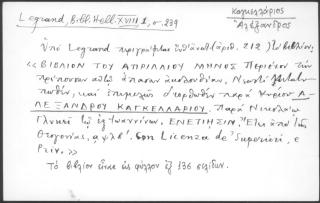 Legrand, Bibl. Hell. XVIII 1, σ. 239
Καγκελλάριος
Ἀλέξανδρος
Ὑπὸ Legrand περιγράφεται ὑπ' ἀριθ. 212 τὸ βιβλίον
«ΒΙΒΛΙΟΝ ΤΟΥ ΑΠΡΙΛΛΙΟΥ ΜΗΝΟΣ Περιέχον τὴν
πρέπουσαν αὐτῷ ἅπασαν ἀκολουθίαν, Νεωστὶ
καὶ ἐπιμελῶς διορθωθὲν παρὰ Κυρίου Α-
ΛΕΞΑΝΔΡΟΥ ΚΑΓΚΕΛΛΑΡΙΟΥ. παρὰ Νικολάῳ
Γλυκεῖ τῷ ἐξ Ἰωαννίνων, ΕΝΕΤΙΗΣΙΝ, Ἔτει ἀπὸ τῆς
Θεογονίας, αψλβ'. Con Licenza de' Superiori, e
Priv.»
Τὸ βιβλίον εἶναι εἰς φύλλον ἐξ 136 σελίδων.